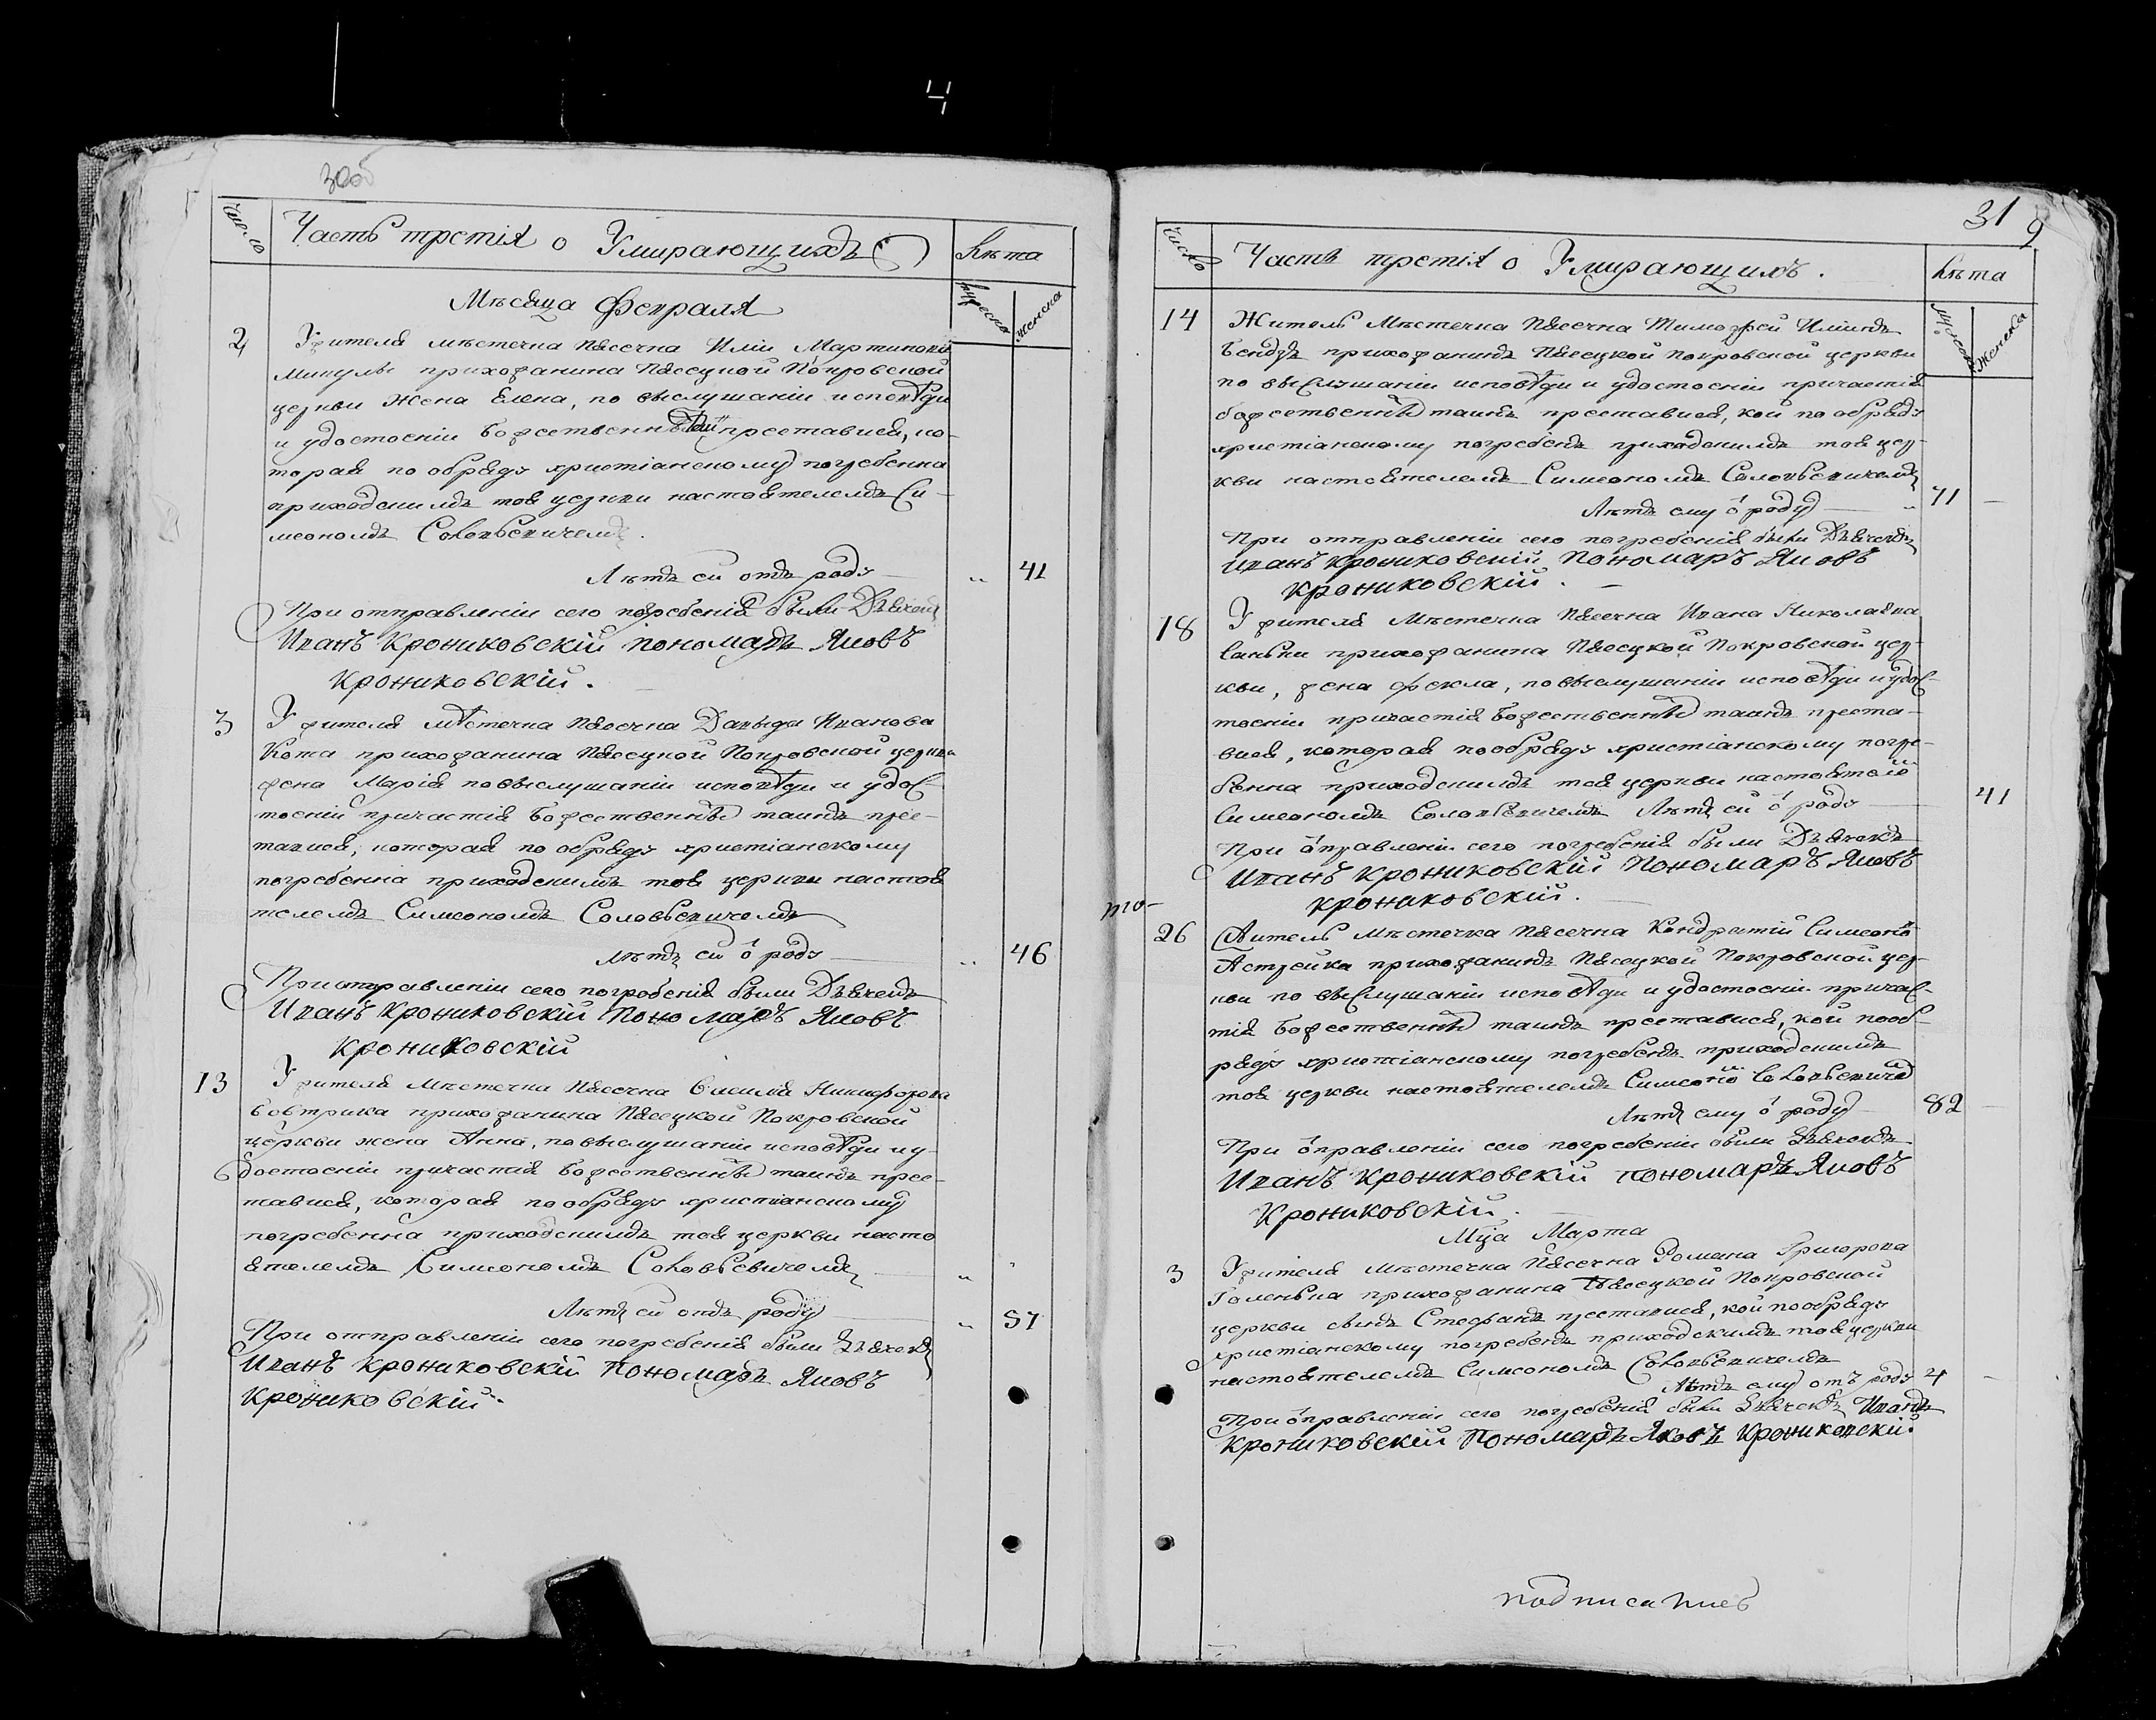 4
30об
Число
Часть третія о Умирающихъ
Лѣта
Мужеска
Женска
Мѣсяца Февраля
2
У жителя мѣстечка Пѧсечна Иліи Мартинова
Микулы прихожанина Пѧсецкой Покровской
церкви жена Елена, по выслушаніи исповѣди
и удостоеніи Божественныхъ таинъ преставися, ко-
торая по обряду христіанскому погребенна
приходскимъ тоя церкви настоятелемъ Си-
меономъ Соловьевичемъ.
Лѣтъ ей отъ роду
41
При отправленіи сего погребенія были Дьячекъ
Иванъ Крониковскій Пономарь Яковъ
Крониковскій.
3
У жителя мѣстечка Пѧсечна Давыда Иванова
Кота прихожанина Пѧсецкой Покровской церкви
жена Марія по выслушаніи исповѣди и удос-
тоеніи причастія Божественныхъ таинъ прес-
тавися, которая по обряду христіанскому
погребенна приходскимъ тоя церкви настоя
телемъ Симеономъ Соловьевичемъ
лѣтъ ей о роду
46
При отправленіи сего погребенія были Дьячекъ
Иванъ Крониковскій Пономаръ Яковъ
Крониковскій
13
У жителя мѣстечка Пѧсечна Василія Никифорова
Бовтрика прихожанина Пѧсецкой Покровской
церкви жена Анна, по выслушаніи исповѣди и у-
достоеніи причастія Божественныхъ таинъ прес-
тавися, которая по обряду христіанскому
погребенна приходскимъ тоя церкви насто
ятелемъ Симеономъ Соловьевичемъ
Лѣтъ ей отъ роду
57
При отправленіи сего погребенія были Дьячекъ
Иванъ Крониковскій Пономаръ Яковъ
Крониковскій.
31
9
Число
Часть третія о Умирающихъ.
Лѣта
Мужеска
Женска
14
Житель Мѣстечка Пѧсечна Тимофей Иліинъ
Бендзъ прихожанинъ Пѧсецкой Покровской церкви
по выслушаніи исповѣди и удостоеніи причастія
божественныхъ таинъ преставися, кой по обряду
христіанскому погребенъ приходскимъ тоя цер-
кви настоятелемъ Симеономъ Соловьевичемъ
Лѣтъ ему о роду
71
При отправленіи сего погребенія были Дьячекъ
Иванъ Крониковскій Пономаръ Яковъ
Крониковскій.
18
У жителя Мѣстечка Пѧсечна Ивана Николаева
прихожанина Пѧсецкой Покровской цер-
кви, жена Фекла, по выслушаніи исповѣди и удос-
тоеніи причастія Божественныхъ таинъ преста-
вися, которая по обряду христіанскому погре-
бенна приходскимъ тоя церкви настоятелемъ
Симеономъ Соловьевичемъ Лѣтъ ей о роду
41
При оправленіи сего погребенія были Дьячекъ
Иванъ Крониковскій Пономаръ Яковъ
Крониковскій.
то-
26
Житель Мѣстечка Пѧсечна Кондратій Симеоновъ
Астрейка прихожанинъ Пѧсецкой Покровской цер-
кви по выслушаніи исповѣди и удостоеніи причас-
тія Божественныхъ таинъ преставися, кой по об-
ряду христіанскому погребенъ приходскимъ
тоя церкви настоятелемъ Симеономъ Соловьевичемъ
Лѣтъ ему о роду
82
При оправленіи сего погребеніи были Дьячекъ
Иванъ Крониковскій пономаръ Яковъ
Крониковскій.
Мца Марта
3
У жителя мѣстечка Пѧсечна Романа Григорова
прихожанина Пѧсецкой Покровской
церкви сынъ Стефанъ преставися, кой по обряду
христіанскому погребенъ приходскимъ тоя церкви
настоятелемъ Симеономъ Соловьевичемъ
Лѣтъ ему отъ роду 4
При оправленіи сего погребенія были Дьячекъ Иванъ
Крониковскій Пономаръ Яковъ Крониковскій.
подписалися